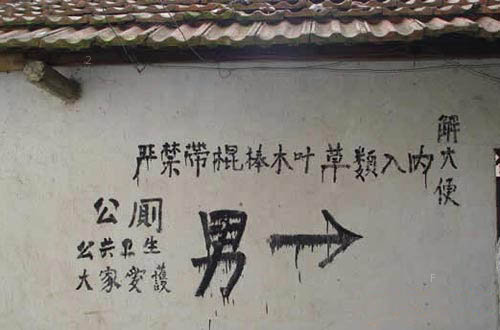 严禁带棍棒木叶草類入内
解大便
公厕
公共卫生
大家爱護
男
2
F